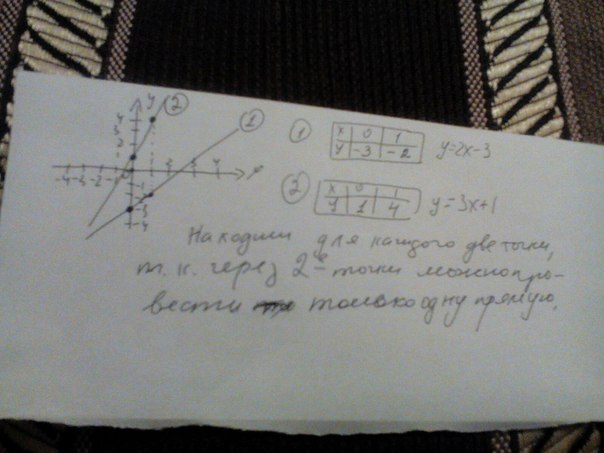 y
2
1
4
3
-4 -3 -2 -1 0
-3
-4
1
x 0 1
y -3 -2
y=2x-3
2
x 0 1
y 1 4
y=3x+1
Находим для каждого две точки,
т. к. через 2-е точки можно про-
вести только одну прямую.